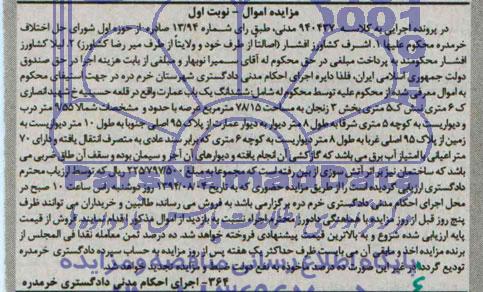 مزایده اموال - نوبت اول
در پرونده اجرایی به کلاسه مدنی، طبق رای شماره ۱۳/۹۴ صادره از حوزه اول شورای حل اختلاف
خرمدره محکوم علیها ۱. اشرف کشاورز افشار (اصالتا از طرف خود و ولایتاً از طرف میر رضا کشاورز) ۲. لیلا کشاورز
افشار محکومند به پرداخت مبلغی در حق محکوم له آقای سمیرا نوبهار و مبلغی از بابت هزینه اجرا در حق صندوق
دولت جمهوری اسلامی ایران، فلذا دایره اجرای احکام مدنی دادگستری شهرستان خرم دره در جهت استیفای محکوم
به اموال معرفی شده از محکوم علیه توسط محکوم له شامل: ششدانگ یک باب عمارت واقع در قلعه حسینیه خ شهید انصاری
ک ۶ متری پلاک ۵۸ متری بخش ۳ زنجان به مساحت ۷۸/۱۵ متر مربع عرصه با حدود و مشخصات شمالا ۹/۵۵ متر درب
و دیواریست به کوچه ۵ متری شرقا به طول ۸ متر دیوار به دیوار عمارت از پلاک ۹۵ اصلی جنوبا به طول ۱۰ متر دیواریست به
زمین از پلاک ۹۵ اصلی غربا به طول ۸ متر دیواریست به کوچه ۶ متری که برابر سند عادی به متصرف انتقال یافته و دارای ۷۰
متر اعیانی با امتیاز آب برق می باشد که گازکشی آن انجام یافته و دیوارهای آن آجر و سیمان بوده و سقف آن طاق ضربی می
باشد که ساختمان نیز بر اثر آتش سوزی از بین رفته است که مجموعا به مبلغ ۲۲۵۷۹۷۵۰۰ ریال که توسط ارزیاب محترم
دادگستری ارزیابی گردیده است را از طریق مزایده حضوری که به تاریخ ساعت ۱۰ صبح در
محل اجرای احکام مدنی دادگستری خرم دره برگزار می باشد به فروش می رساند، طالبین و خریداران می توانند ظرف
پنج روز قبل از روز مزایده با هماهنگی دادورز محترم اجرا نسبت به بازدید از اموال مذکور اقدام نمایند. فروش از قیمت
پایه ارزیابی شده شروع و به بالاترین قیمت پیشنهادی فروخته خواهد شد. ده درصد ثمن معامله نقدا فی المجلس از
برنده مزایده اخذ و مابقی آن می بایست ظرف حداکثر یک هفته پس از روز مزایده به حساب سپرده دادگستری خرمدره
تودیع گردد در غیر این صورت ده درصد ماخوذه به نفع دولت ضبط و مزایده تجدید خواهد شد.
۳۶۳- اجرای احکام مدنی دادگستری خرمدره
پایگاه اطلاع رسانی مناقصه و مزایده